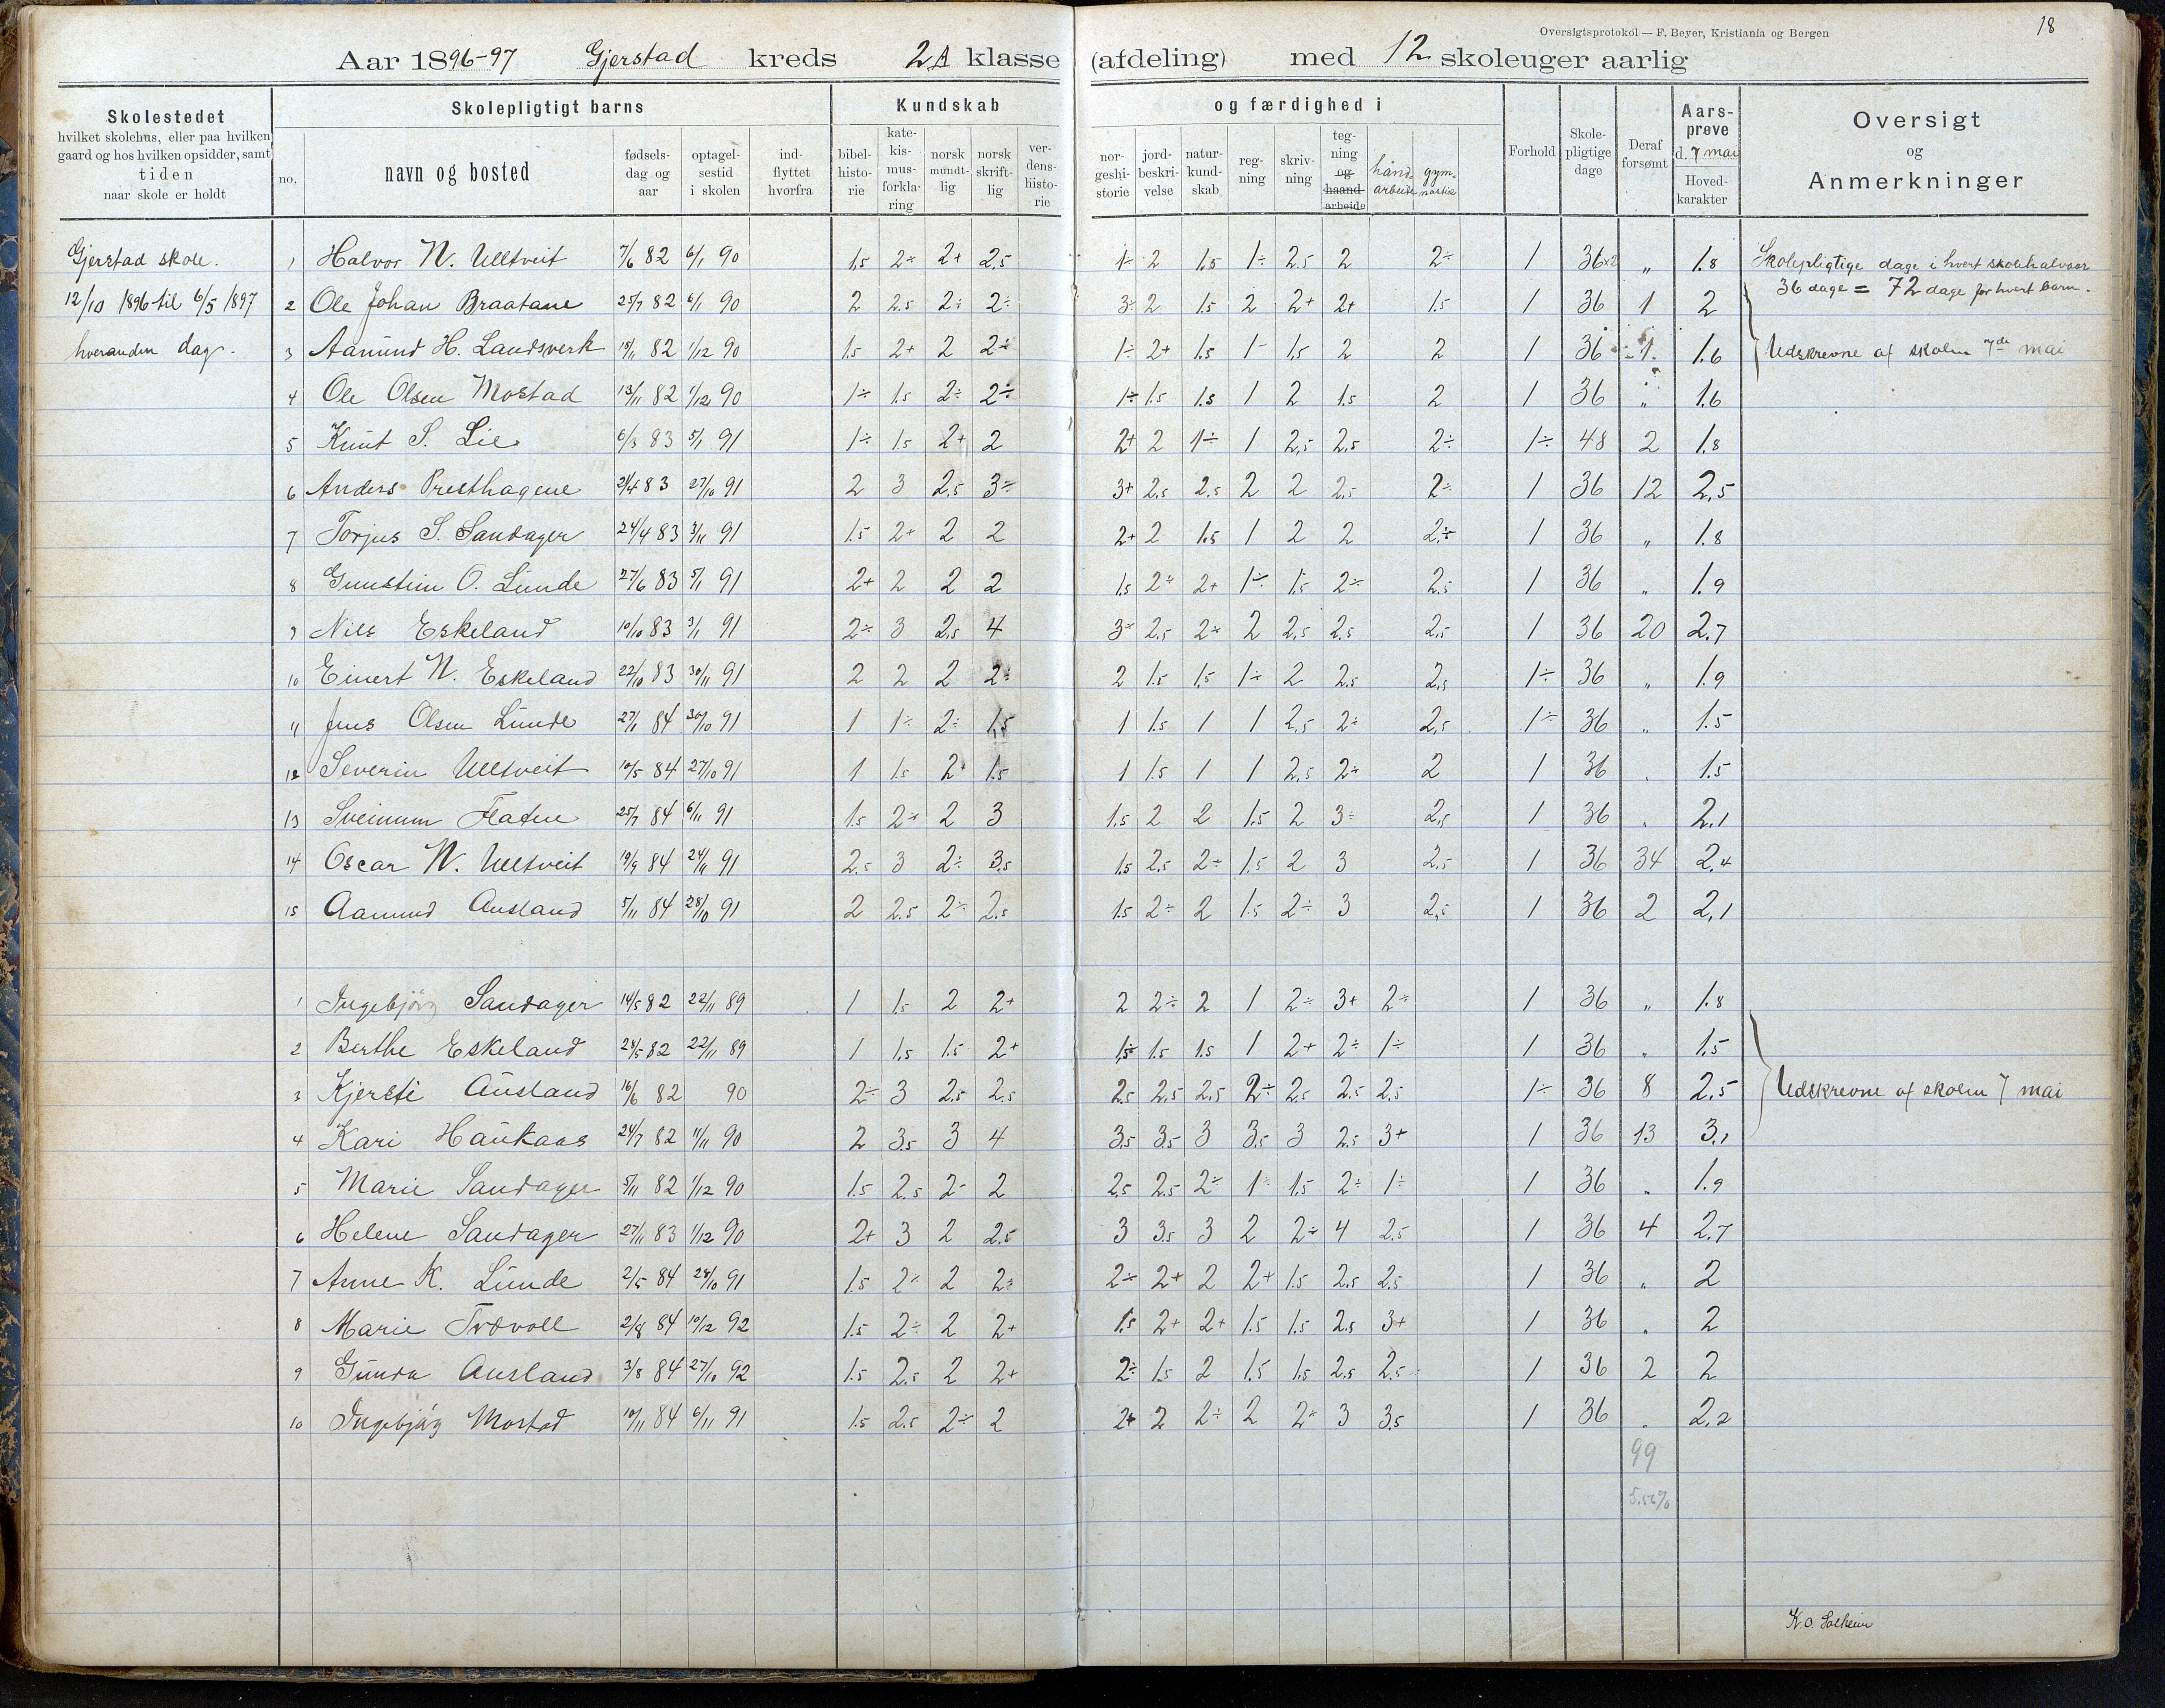 Oversigtsprotokol — F. Beyer, Kristiania og Bergen
18
Aar 1896-97 Gjerstad kreds 2A klasse (afdeling) med 12 skoleuger aarlig
Skolestedet
hvilket skolehus, eller paa hvilken
gaard og hos hvilken opsidder, samt
tiden
naar skole er holdt
Skolepligtigt barns
no.
navn og bosted
fødsels-
dag og
aar
optagel-
sestid
i skolen
ind-
flyttet
hvorfra
Kundskab
bibel-
histo-
rie
kate-
kis-
mus-
forkla-
ring
norsk
mundt-
lig
norsk
skrift-
lig
ver-
dens-
histo-
rie
og færdighed i
nor-
geshi-
storie
jord-
beskri-
velse
natur-
kund-
skab
reg-
ning
skriv-
ning
teg-
ning
og
haand-
arbeide
hånd-
arbeide
gym-
nastik
Forhold
Skole-
pligtige
dage
Deraf
forsømt
Aars-
prøve
d. 7 mai
Hoved-
karakter
Oversigt
og
Anmerkninger
Gjerstad skole.
12/10 1896 til 6/5 1897
hveranden dag.
1 Halvor N. Ulltveit 7/6 82 6/1 90 1.5 2÷ 2+ 2.5 1÷ 2 1.5 1÷ 2.5 2 2÷ 1 36×2 „ 1.8
2 Ole Johan Braatane 25/7 82 6/1 90 2 2.5 2÷ 2÷ 3÷ 2 1.5 2 2+ 2+ 1.5 1 36 1 2
3 Aamund H. Landsverk 18/11 82 1/12 90 1.5 2+ 2 2÷ 1÷ 2+ 1.5 1- 1.5 2 2 1 36 1 1.6
4 Ole Olsen Mostad 13/11 82 1/12 90 1÷ 1.5 2÷ 2÷ 1÷ 1.5 1.5 1 2 1.5 2 1 36 „ 1.6
5 Knut S. Lie 6/3 83 5/1 91 1÷ 1.5 2+ 2 2+ 2 1÷ 1 2.5 2.5 2÷ 1÷ 48 2 1.8
6 Anders Presthagene 2/4 83 27/10 91 2 3 2.5 3÷ 3+ 2.5 2.5 2 2 2.5 2÷ 1 36 12 2.5
7 Torjus S. Sandager 24/4 83 3/11 91 1.5 2+ 2 2 2+ 2 1.5 1 2 2 2÷ 1 36 „ 1.8
8 Gunstein O. Lunde 27/6 83 5/1 91 2+ 2 2 2 1.5 2÷ 2+ 1÷ 1.5 2÷ 2.5 1 36 „ 1.9
9 Nils Eskeland 10/10 83 3/1 91 2÷ 3 2.5 4 3÷ 2.5 2÷ 2 2.5 2.5 2.5 1 36 20 2.7
10 Einert N. Eskeland 22/10 83 30/11 91 2 2 2 2÷ 2 1.5 1.5 1÷ 2 2.5 2.5 1÷ 36 „ 1.9
11 Jens Olsen Lunde 27/1 84 30/10 91 1 1÷ 2÷ 1.5 1 1.5 1 1 2.5 2÷ 2.5 1÷ 36 „ 1.5
12 Severin Ulltveit 10/5 84 27/10 91 1 1.5 2+ 1.5 1 1.5 1 1 2.5 2÷ 2 1 36 „ 1.5
13 Sveinum Flaten 25/7 84 6/11 91 1.5 2÷ 2 3 1.5 2 2 1.5 2 3÷ 2.5 1 36 „ 2.1
14 Oscar N. Ulltveit 19/9 84 24/11 91 2.5 3 2÷ 3.5 1.5 2.5 2÷ 1.5 2 3 2.5 1 36 34 2.4
15 Aamund Ausland 5/11 84 28/10 91 2 2.5 2÷ 2.5 1.5 2÷ 2 1.5 2÷ 3 2.5 1 36 2 2.1
1 Ingebjörg Sandager 14/5 82 22/11 89 1 1.5 2 2+ 2 2÷ 2 1 2÷ 3+ 2÷ 1 36 „ 1.8
2 Berthe Eskeland 28/5 82 22/11 89 1 1.5 1.5 2+ 1.5 1.5 1.5 1 2+ 2÷ 1÷ 1 36 „ 1.5
3 Kjersti Ausland 16/6 82 90 2÷ 3 2.5 2.5 2.5 2.5 2.5 2÷ 2.5 2.5 2.5 1÷ 36 8 2.5
4 Kari Haukaas 24/7 82 11/11 90 2 3.5 3 4 3.5 3.5 3 3.5 3 2.5 3+ 1 36 13 3.1
5 Marie Sandager 5/11 82 1/12 90 1.5 2.5 2- 2 2.5 2.5 2÷ 1÷ 1.5 2÷ 1÷ 1 36 „ 1.9
6 Helene Sandager 27/11 83 1/12 90 2+ 3 2 2.5 3 3.5 3 2 2÷ 4 2.5 1 36 4 2.7
7 Anne K. Lunde 2/5 84 28/10 91 1.5 2÷ 2 2÷ 2÷ 2+ 2 2+ 1.5 2.5 2.5 1 36 „ 2
8 Marie Trovoll 2/8 84 10/12 92 1.5 2÷ 2 2+ 1.5 2+ 2+ 1.5 1.5 2.5 3+ 1 36 „ 2
9 Gunda Ausland 3/8 84 27/10 92 1.5 2.5 2 2+ 2÷ 1.5 2 1.5 1.5 2.5 2.5 1 36 2 2
10 Ingebjørg Mostad 10/11 84 6/11 91 1.5 2.5 2÷ 2 2+ 2 2÷ 2 2÷ 3 3.5 1 36 „ 2.2
99
5.50%
Skolepligtige dage i hvert skolehalvaar
36 dage = 72 dage for hvert barn.
Udskrevne af skolen 7de mai
Udskrevne af skolen 7 mai
K. O. Solheim